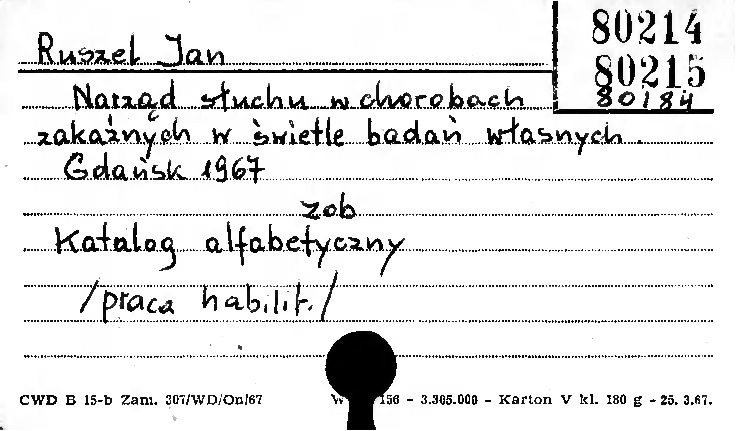 Ruszel Jan
80214
80215
80184
Narząd słuchu w chorobach
zakaźnych w świetle badań własnych.
Gdańsk 1967
zob
Katalog alfabetyczny
/praca habilit./
CWD B 15-b Zam. 307/WD/On/67 156 - 3.305.000 - Karton V kl. 180 g - 25. 3.67.